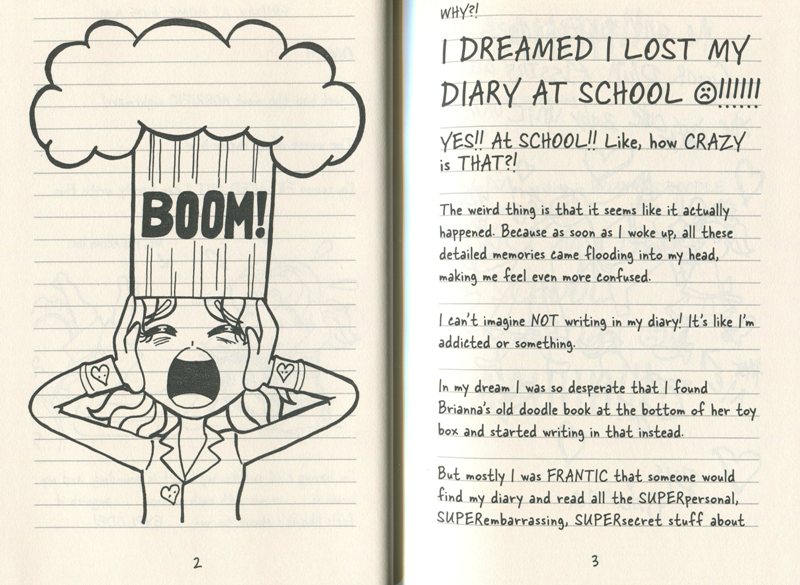 BOOM!
2
WHY?!
I DREAMED I LOST MY
DIARY AT SCHOOL ☹!!!!!!
YES!! At SCHOOL!! Like, how CRAZY
is THAT?!
The weird thing is that it seems like it actually
happened. Because as soon as I woke up, all these
detailed memories came flooding into my head,
making me feel even more confused.
I can't imagine NOT writing in my diary! It's like I'm
addicted or something.
In my dream I was so desperate that I found
Brianna's old doodle book at the bottom of her toy
box and started writing in that instead.
But mostly I was FRANTIC that someone would
find my diary and read all the SUPERpersonal,
SUPERembarrassing, SUPERsecret stuff about
3